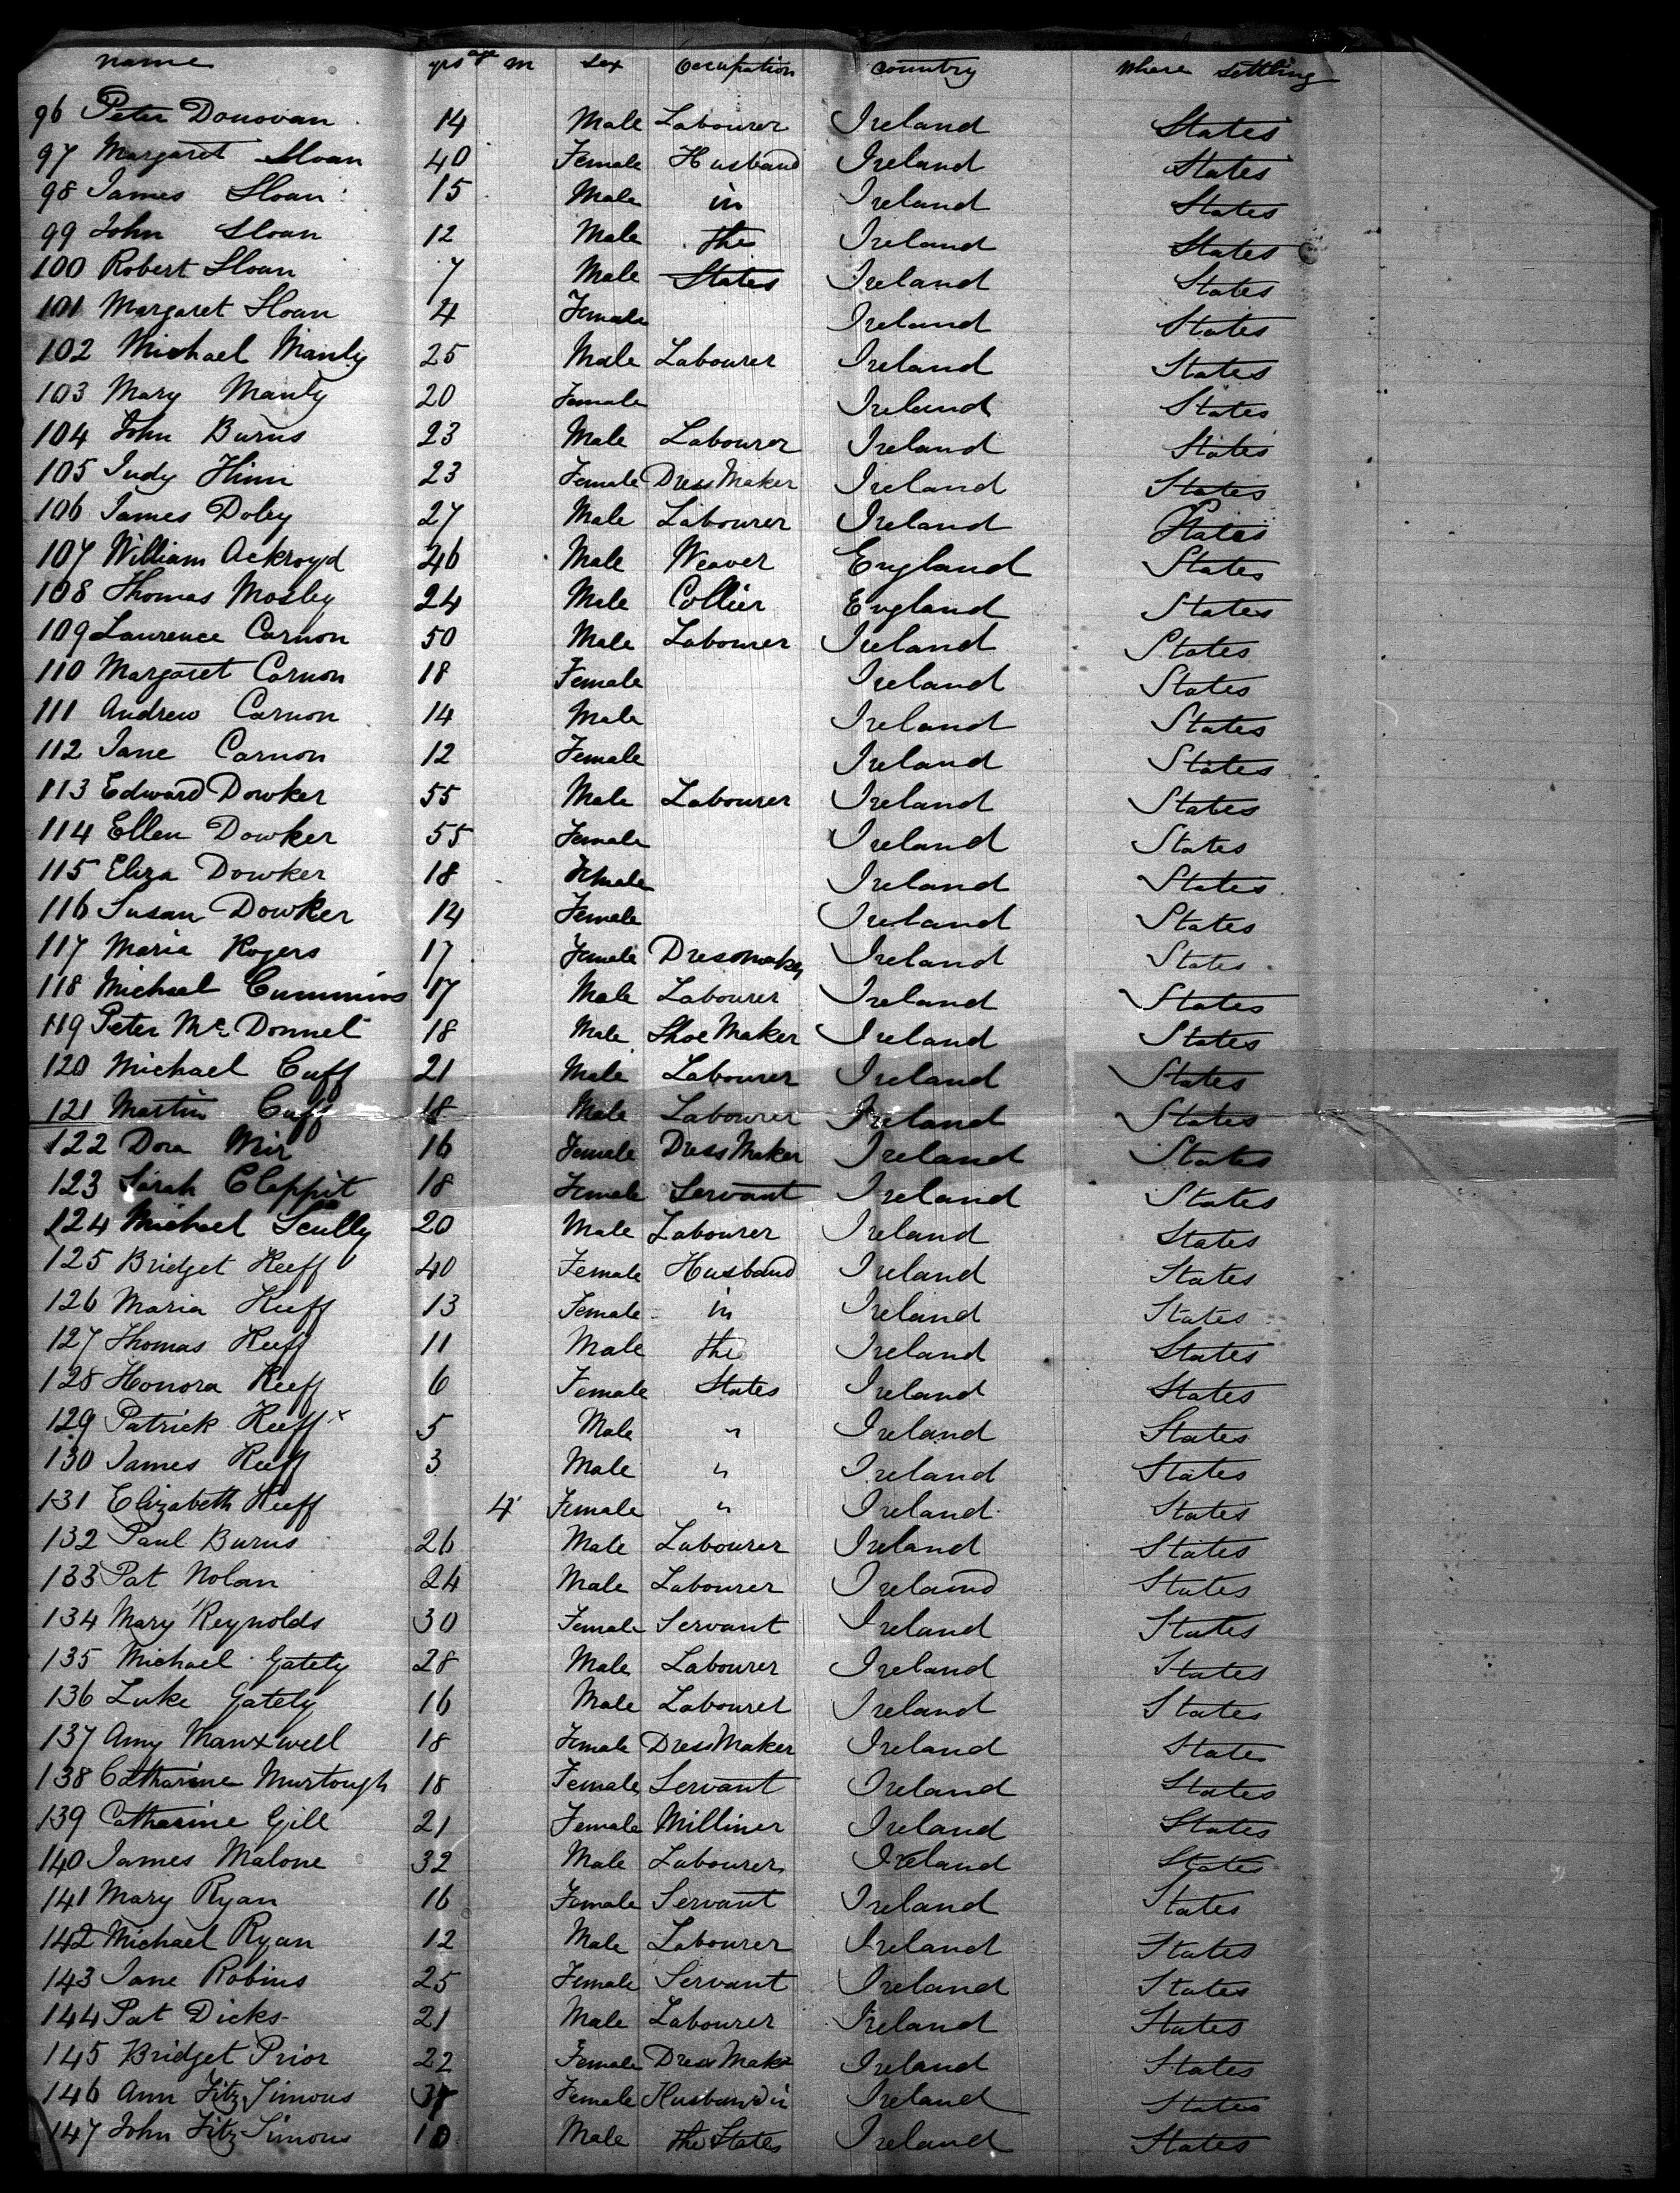 name yrs age m Sex Occupation country where settling
96 Peter Donovan 14 Male Labourer Ireland States
97 Margaret Sloan 40 Female Husband Ireland States
98 James Sloan 15 Male in Ireland States
99 John Sloan 12 Male the Ireland States
100 Robert Sloan 7 Male States Ireland States
101 Margaret Sloan 4 Female Ireland States
102 Michael Manly 25 Male Labourer Ireland States
103 Mary Manly 20 Female Ireland States
104 John Burns 23 Male Labourer Ireland States
105 Judy 23 Female Dress Maker Ireland States
106 James Doley 27 Male Labourer Ireland States
107 William Ackroyd 26 Male Weaver England States
108 Thomas Mosley 24 Male Collier England States
109 Laurence Carnon 50 Male Labourer Ireland States
110 Margaret Carnon 18 Female Ireland States
111 Andrew Carnon 14 Male Ireland States
112 Jane Carnon 12 Female Ireland States
113 Edward Dowker 55 Male Labourer Ireland States
114 Ellen Dowker 55 Female Ireland States
115 Eliza Dowker 18 Female Ireland States
116 Susan Dowker 14 Female Ireland States
117 Maria Rogers 17 Female Dressmaker Ireland States
118 Michael Cummins 17 Male Labourer Ireland States
119 Peter Mc Donnel 18 Male Shoe Maker Ireland States
120 Michael Cuff 21 Male Labourer Ireland States
121 Martin Cuff 18 Male Labourer Ireland States
122 Dora 16 Female Dress Maker Ireland States
123 Sarah Clappit 18 Female Servant Ireland States
124 Michael Scully 20 Male Labourer Ireland States
125 Bridget Keeff 40 Female Husband Ireland States
126 Maria Keeff 13 Female in Ireland States
127 Thomas Keeff 11 Male the Ireland States
128 Honora Keeff 6 Female States Ireland States
129 Patrick Keeff x 5 Male " Ireland States
130 James Keeff 3 Male " Ireland States
131 Elizabeth Keeff 4 Female " Ireland States
132 Paul Burns 26 Male Labourer Ireland States
133 Pat Nolan 24 Male Labourer Ireland States
134 Mary Reynolds 30 Female Servant Ireland States
135 Michael Gately 28 Male Labourer Ireland States
136 Luke Gately 16 Male Labourer Ireland States
137 Amy Manxwell 18 Female Dress Maker Ireland States
138 Catharine Murtough 18 Female Servant Ireland States
139 Catharine Gill 21 Female Milliner Ireland States
140 James Malone 32 Male Labourer Ireland States
141 Mary Ryan 16 Female Servant Ireland States
142 Michael Ryan 12 Male Labourer Ireland States
143 Jane Robins 25 Female Servant Ireland States
144 Pat Dicks 21 Male Labourer Ireland States
145 Bridget Prior 22 Female Dress Maker Ireland States
146 Ann Fitz Simons Female Husband in Ireland States
147 John Fitz Simons 10 Male the States Ireland States